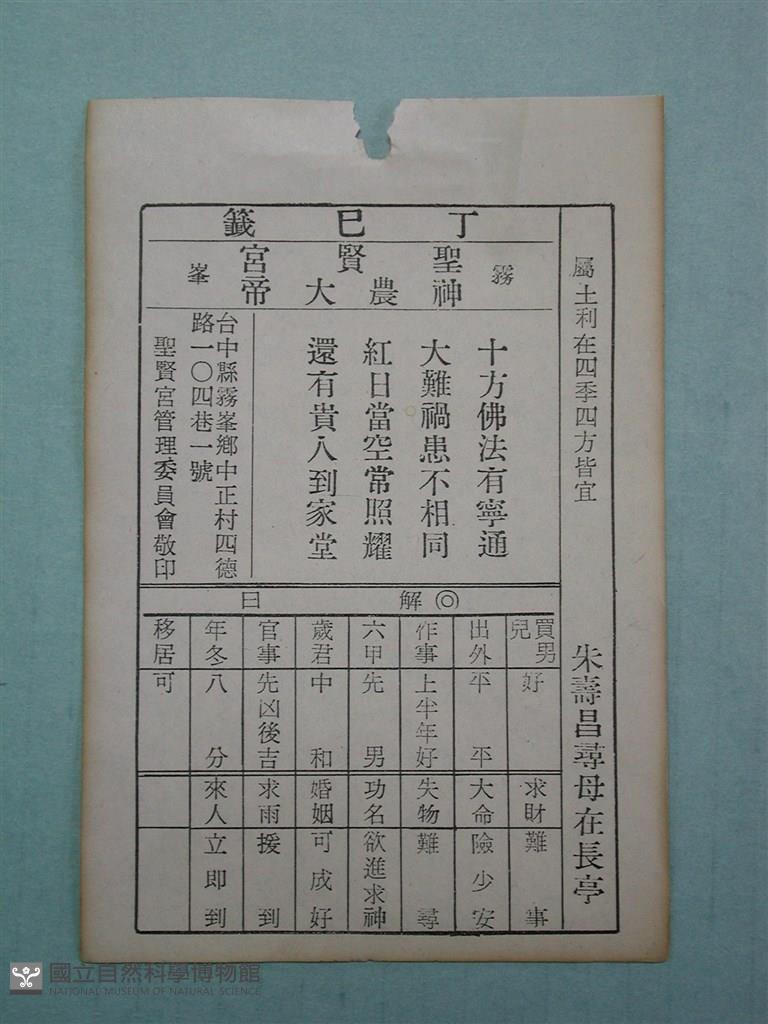 丁巳籤
霧峯
聖賢宮
神農大帝
屬土利在四季四方皆宜
朱壽昌尋母在長亭
十方佛法有寧通
大難禍患不相同
紅日當空常照耀
還有貴人到家堂
台中縣霧峯鄉中正村四德
路一〇四巷一號
聖賢宮管理委員會敬印
◎解曰
買男兒 好 求財 難事
出外 平平 大命 險少安
作事 上半年好 失物 難尋
六甲 先男 功名 欲進求神
歲君 中和 婚姻 可成好
官事 先凶後吉 求雨 援到
年冬 八分 來人 立即到
移居 可
國立自然科學博物館
NATIONAL MUSEUM OF NATURAL SCIENCE